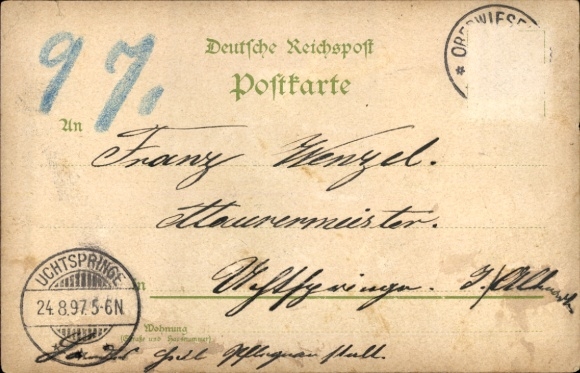 97.
Deutsche Reichspost
Postkarte
OBERWIESE
An
Franz Wenzel.
Maurermeister.
in Uchtspringe. i/Altmark
UCHTSPRINGE
24.8.97.5-6N.
Wohnung
(Straße und Hausnummer)
Pflegeanstalt.